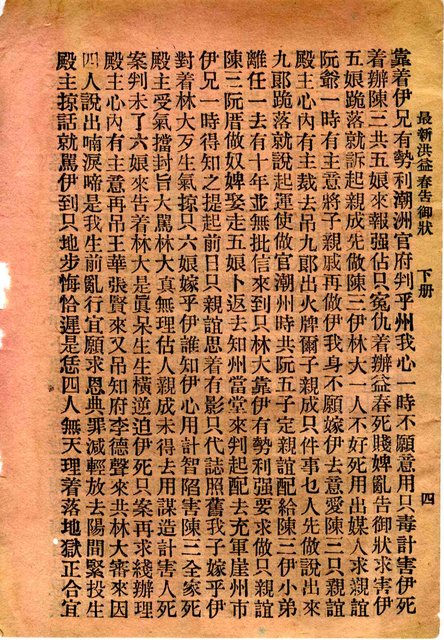 最新洪益春告御狀　下册　四
靠着伊兄有勢利潮洲官府判乎州我心一時不願意用只毒計害伊死
着辦陳三共五娘來報强佔只冤仇着辦益春死賤婢亂告御狀求害伊
五娘跪落就訴起親成先做陳三伊林大一人不好死用出媒人求親誼
阮爺一時有主意將子親戚再做伊我身不願嫁伊去意愛陳三只親誼
殿主心內有主裁去吊九郎出火牌爾子親成只件事乜人先做說出來
九郎跪落就說起運使做官潮州時共阮五子定親誼配給陳三伊小弟
離任一去有十年並無批信來到只林大靠伊有勢利强要求做只親誼
陳三阮厝做奴婢娶走五娘卜返去知州當堂來判起配去充軍崖州市
伊兄一時得知之提起前日只親誼思着有影只代誌照舊我子嫁乎伊
對着林大歹生氣掠只六娘嫁乎伊誰知伊心用計智陷害陳三全家死
殿主受氣擋封旨大罵林大真無理估人親成未得去用謀造計害人死
案判未了六娘來告着林大是眞呆生生橫逆迫伊死只案再求綫辦理
殿主心內有主意再吊王華張賢來又吊知府李德聲來共林大審來因
四人說出喃淚啼是我生前亂行宜願求恩典罪減輕放去陽間緊投生
殿主掠話就罵伊到只地步悔恰遲是恁四人無天理着落地獄正合宜